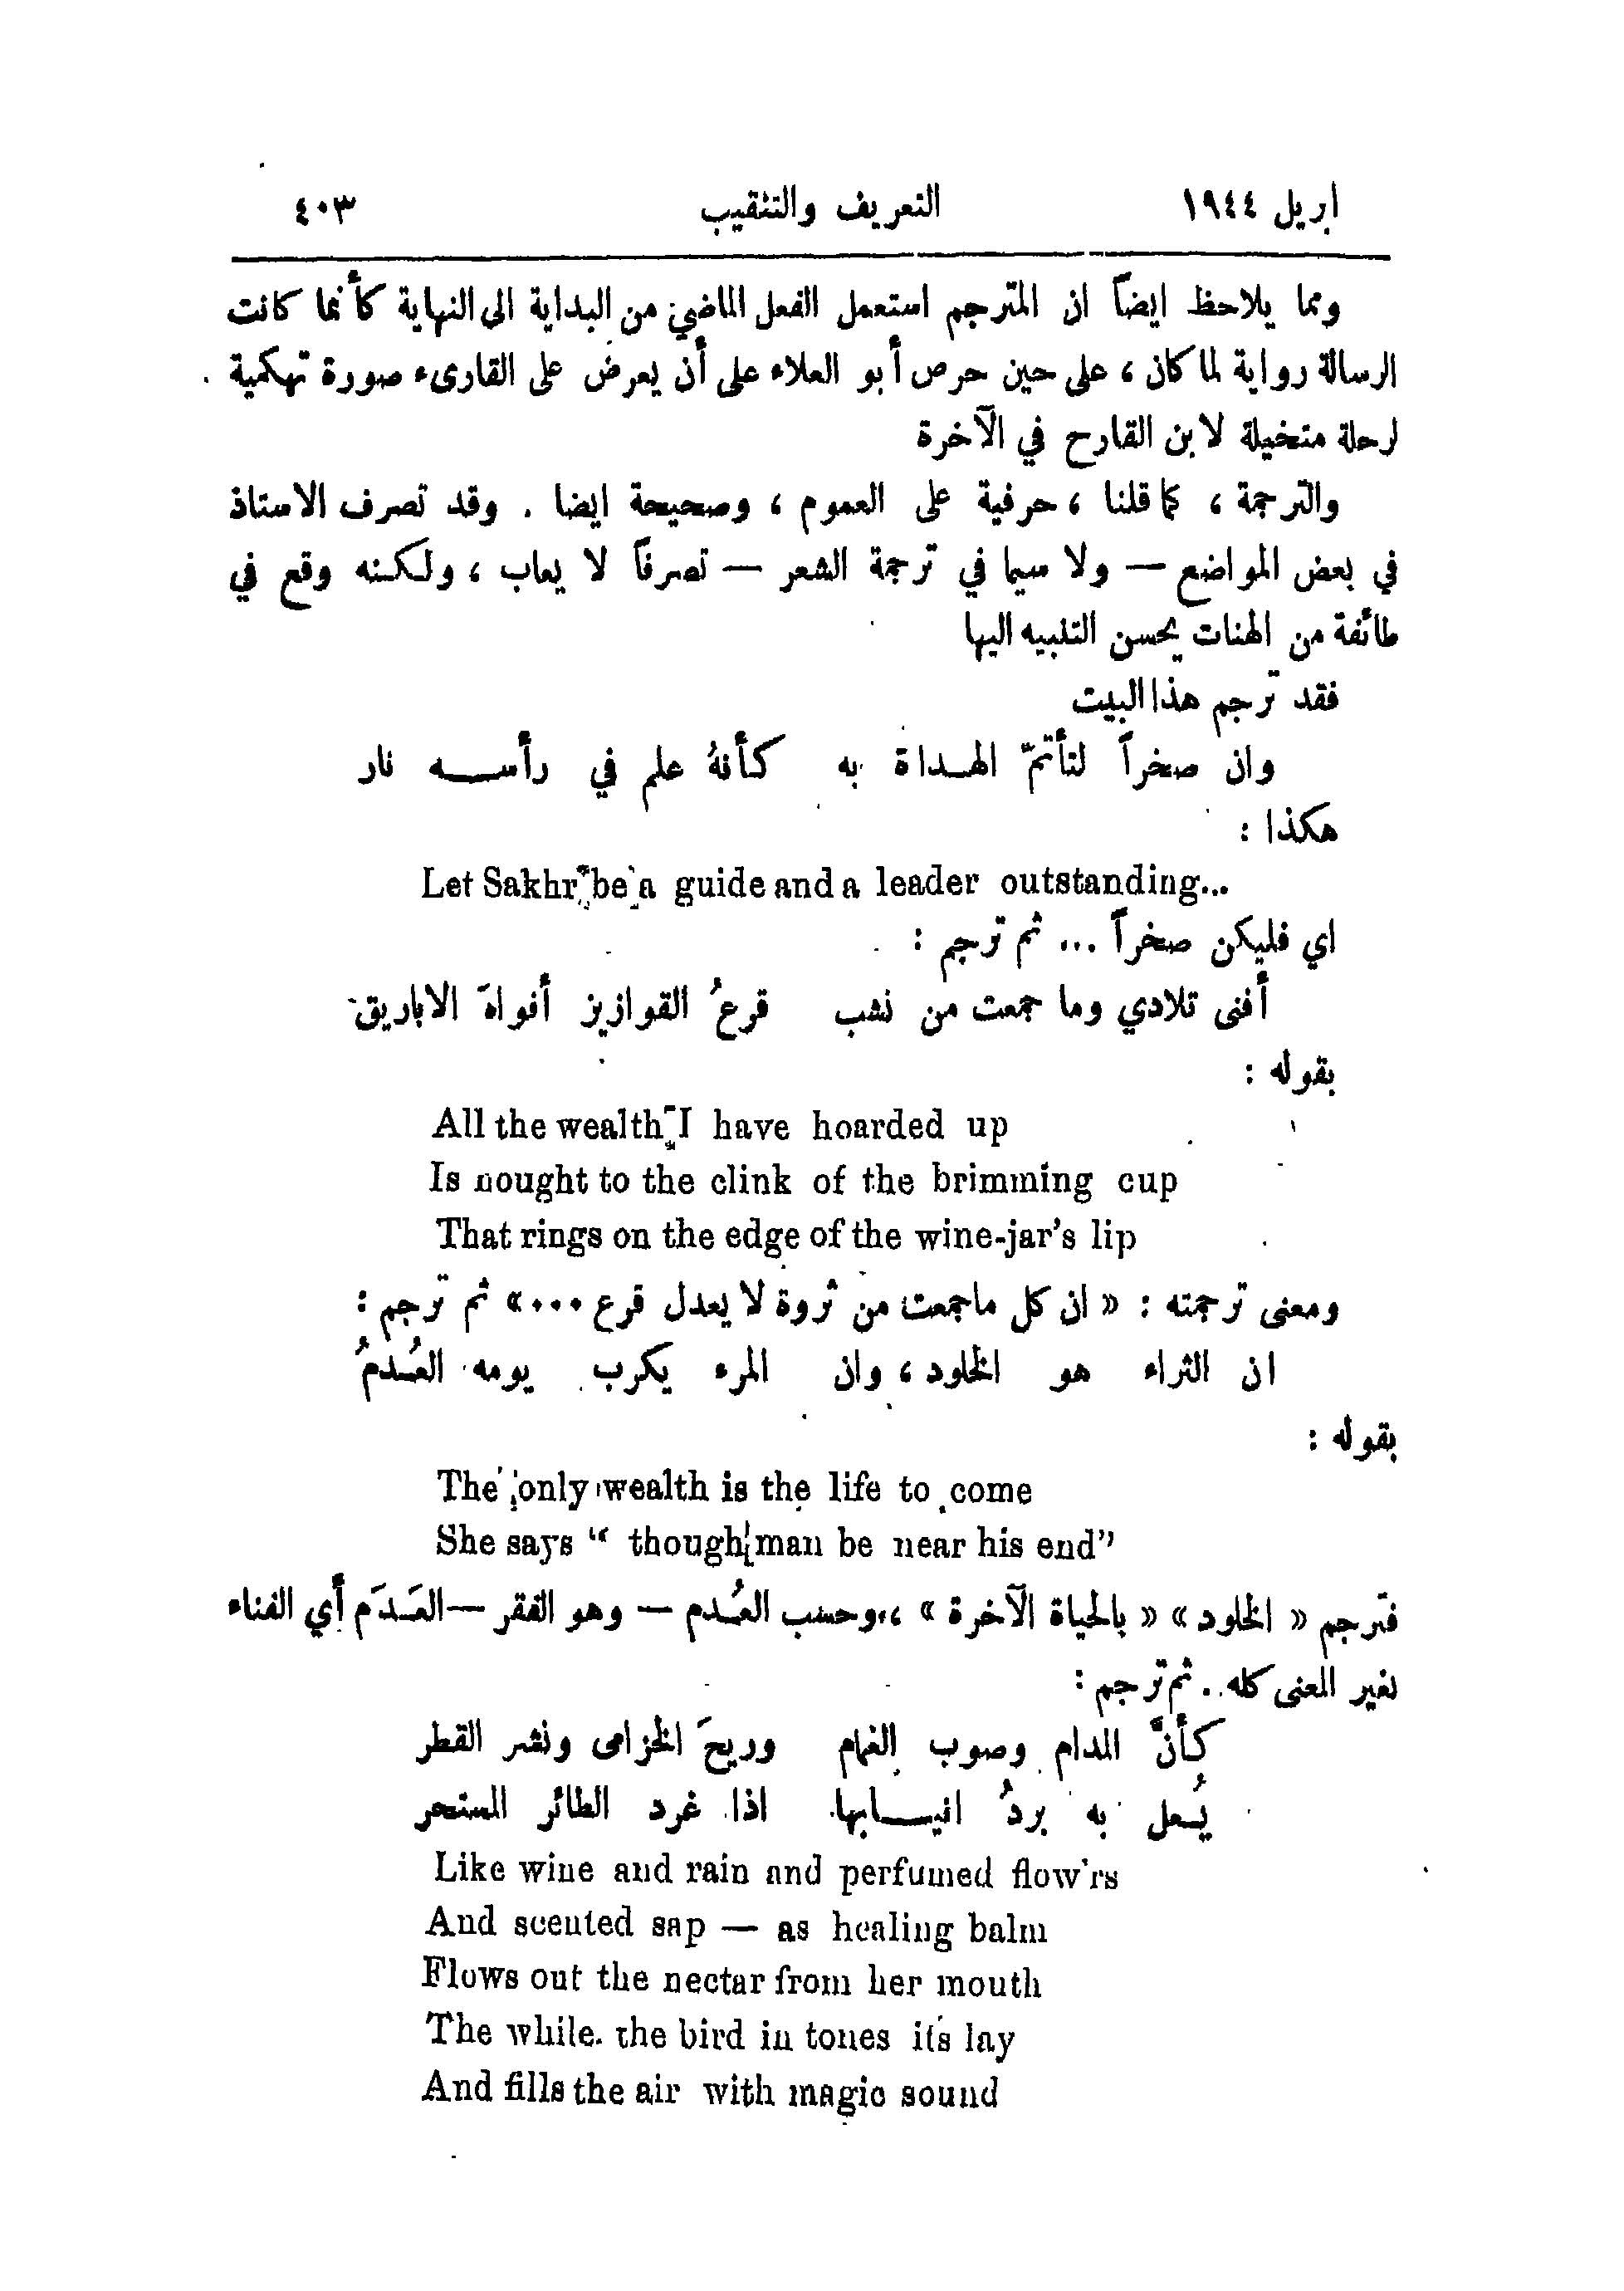 ابريل ١٩٤٤ التعريف والتثقيب ٤٠٣
ومما يلاحظ ايضاً ان المترجم استعمل الفعل الماضي من البداية الى النهاية كأنما كانت
الرسالة رواية لما كان ، على حين حرص أبو العلاء على أن يعرض على القارىء صورة تهكمية
لرحلة متخيلة لابن القارح في الآخرة
والترجمة ، كما قلنا ، حرفية على العموم ، وصحيحة ايضا . وقد تصرف الاستاذ
في بعض المواضع — ولا سيما في ترجمة الشعر — تصرفاً لا يعاب ، ولكنه وقع في
طائفة من الهنات يحسن التنبيه اليها
فقد ترجم هذا البيت
وان صخراً لتأتمّ الهداة به كأنهُ علم في رأسه نار
هكذا :
Let Sakhr be a guide and a leader outstanding...
اي فليكن صخراً ... ثم ترجم :
أفنى تلادي وما جمعت من نشب قرعُ القوازيز أفواهَ الاباريق
بقوله :
All the wealth I have hoarded up
Is nought to the clink of the brimming cup
That rings on the edge of the wine-jar's lip
ومعنى ترجمته : « ان كل ما جمعت من ثروة لا يعدل قرع ... » ثم ترجم :
ان الثراء هو الخلود ، وان المرء يكرب يومه العُدمُ
بقوله :
The only wealth is the life to come
She says " though man be near his end"
فترجم « الخلود » « بالحياة الآخرة » ، وحسب العُدم — وهو الفقر — العَدَم أي الفناء
نغير المعنى كله . ثم ترجم :
كأنَّ المدام وصوب الغمام وريحَ الخزامى ونشر القطر
يُعل به بردُ انيابها اذا غرد الطائر المستحر
Like wine and rain and perfumed flow'rs
And scented sap — as healing balm
Flows out the nectar from her mouth
The while. the bird in tones its lay
And fills the air with magic sound